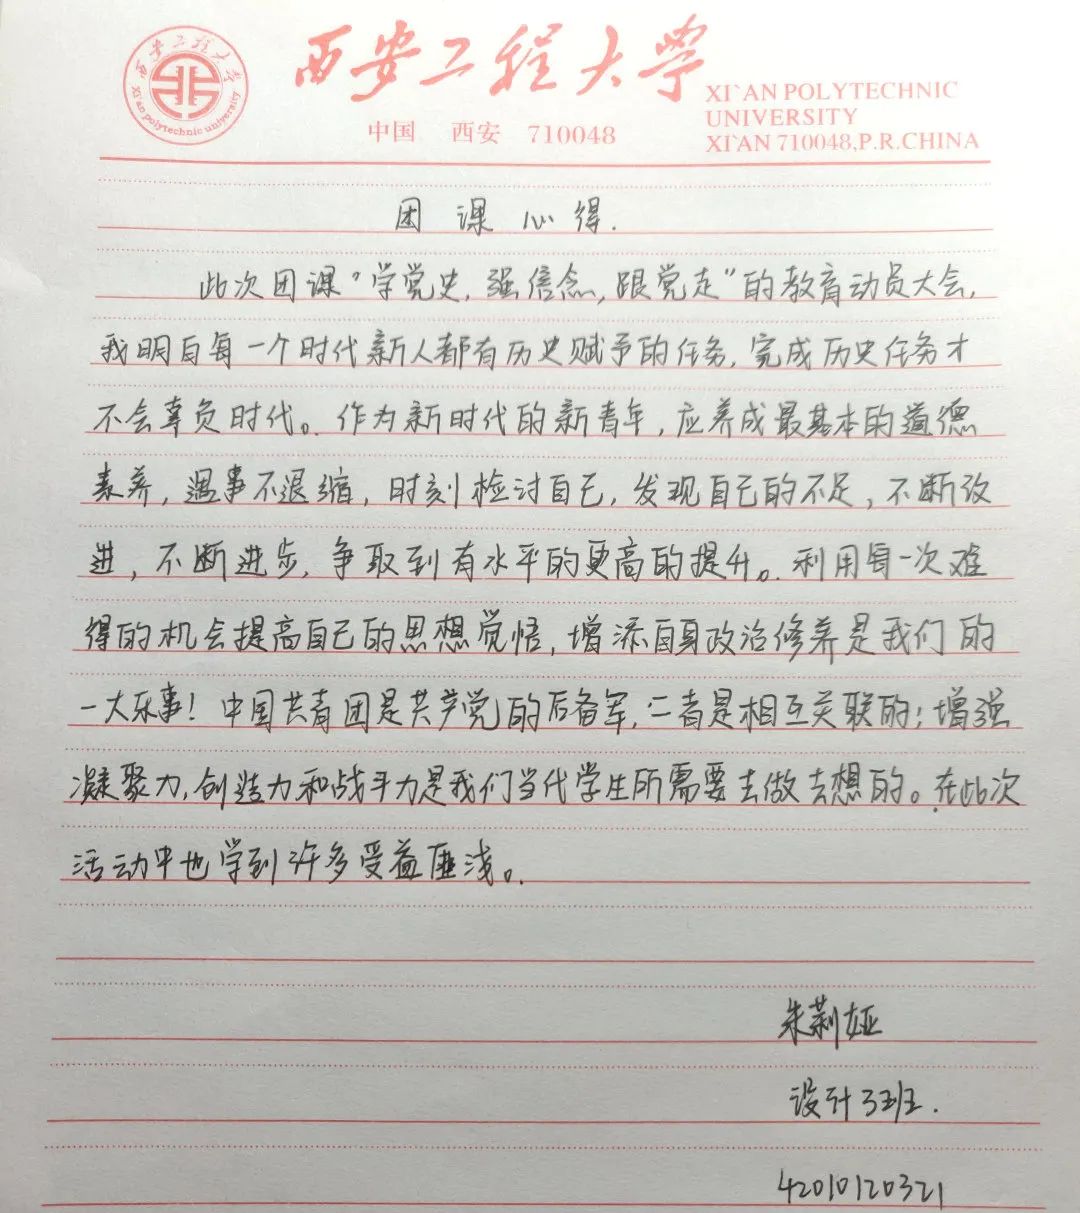 西安工程大学
Xi'an polytechnic university
西安工程大学
XI`AN POLYTECHNIC
UNIVERSITY
中国 西安 710048
XI`AN 710048,P.R.CHINA
团课心得.
此次团课“学党史,强信念,跟党走”的教育动员大会,
我明白每一个时代新人都有历史赋予的任务,完成历史任务才
不会辜负时代。作为新时代的新青年,应养成最基本的道德
素养,遇事不退缩,时刻检讨自己,发现自己的不足,不断改
进,不断进步,争取到有水平的更高的提升。利用每一次难
得的机会提高自己的思想觉悟,增添自身政治修养是我们的
一大乐事!中国共青团是共产党的后备军,二者是相互关联的;增强
凝聚力,创造力和战斗力是我们当代学生所需要去做去想的。在此次
活动中也学到许多受益匪浅。
朱莉娅
设计3班.
42010120321